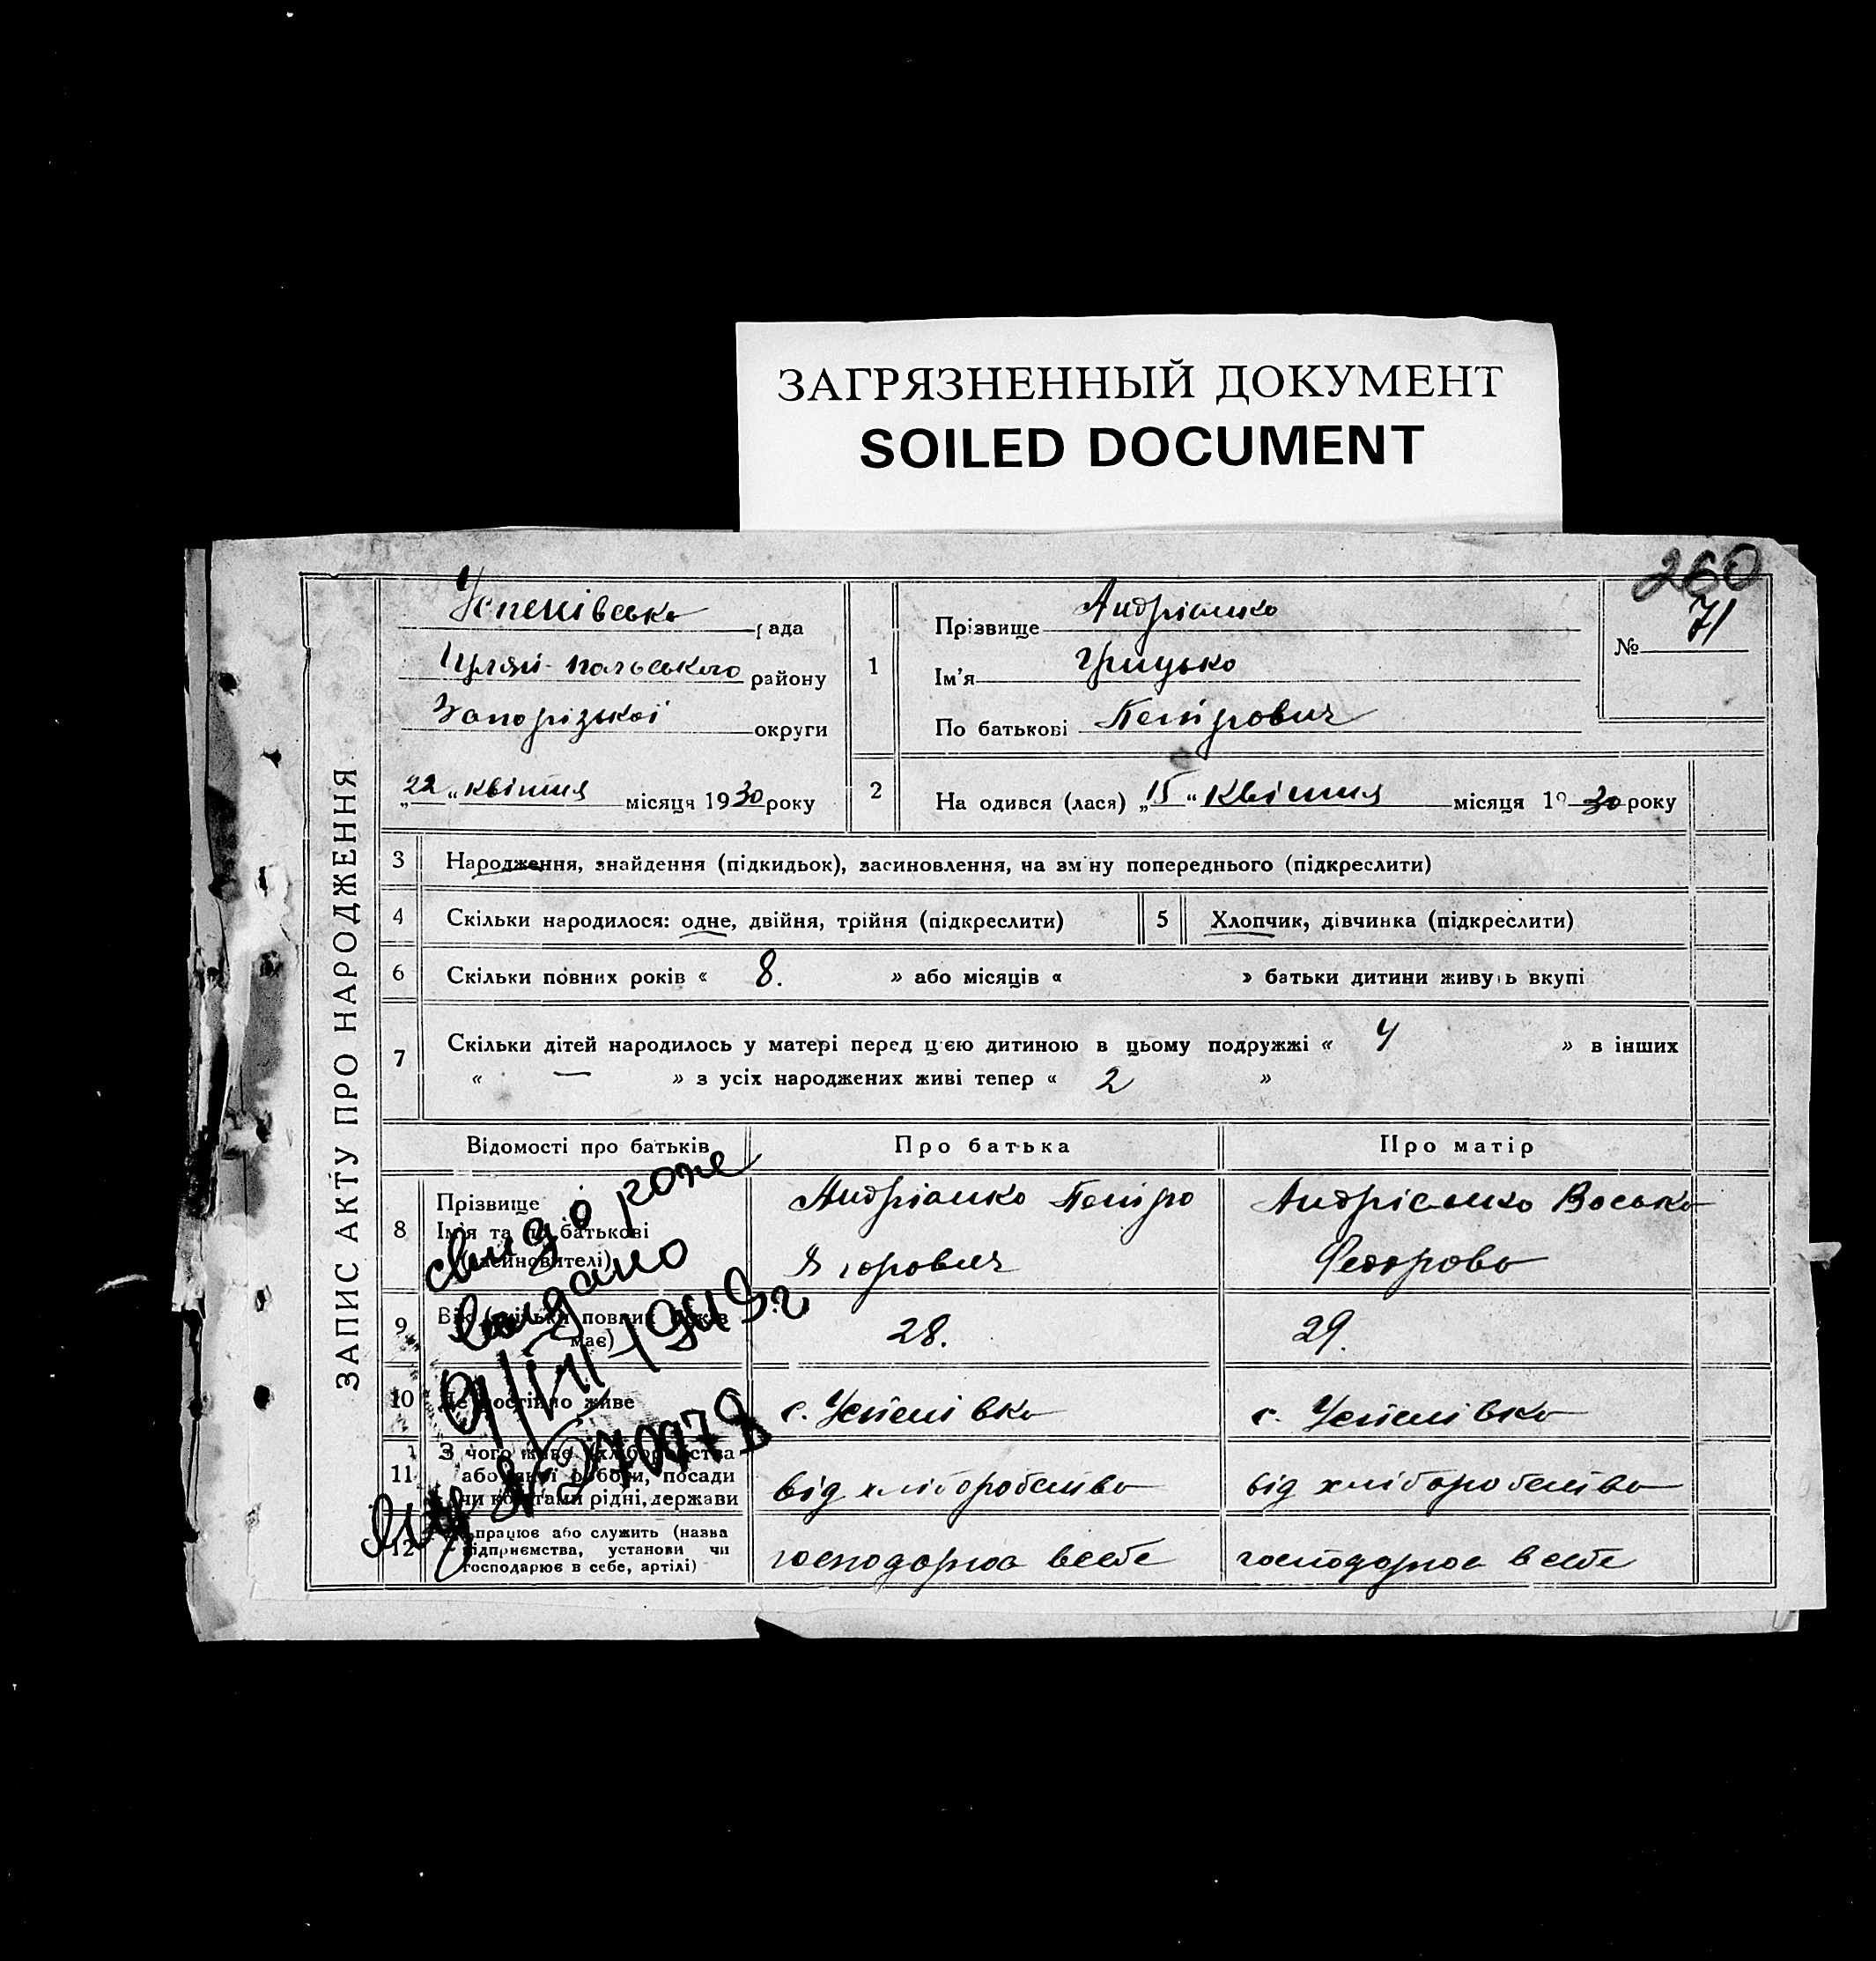 ЗАГРЯЗНЕННЫЙ ДОКУМЕНТ
SOILED DOCUMENT
260
ЗАПИС АКТУ ПРО НАРОДЖЕННЯ
Успенівська рада
Гуляй-польського району
Запорізької округи
„22“ квітня місяця 1930 року
1
Прізвище
Ім'я Грицько
По батькові Петрович
№ 71
2 На одився (лася) „15“ квітня місяця 1930 року
3 Народження, знайдення (підкидьок), засиновлення, на зм ну попереднього (підкреслити)
4 Скільки народилося: одне, двійня, трійня (підкреслити)
5 Хлопчик, дівчинка (підкреслити)
6 Скільки повних років « 8. » або місяців « » батьки дитини живу ь вкупі
7 Скільки дітей народилось у матері перед ц'єю дитиною в цьому подружжі « 4 » в інших
« — » з усіх народжених живі тепер « 2 »
Відомості про батьків
Про батька
Про матір
8 Прізвище
Ім'я та по батькові
Петро
Єгорович
Федорова
9
має)
28.
29.
10 Де постійно живе
с. Успенівка
с. Успенівка
11 З чого живе
посади
чи коштами рідні, держави
від хліборобства
від хліборобства
12 працює або служить (назва
підприємства, установи чи
господарює в себе, артілі)
господарює в себе
господарює в себе
выдано
1943 г